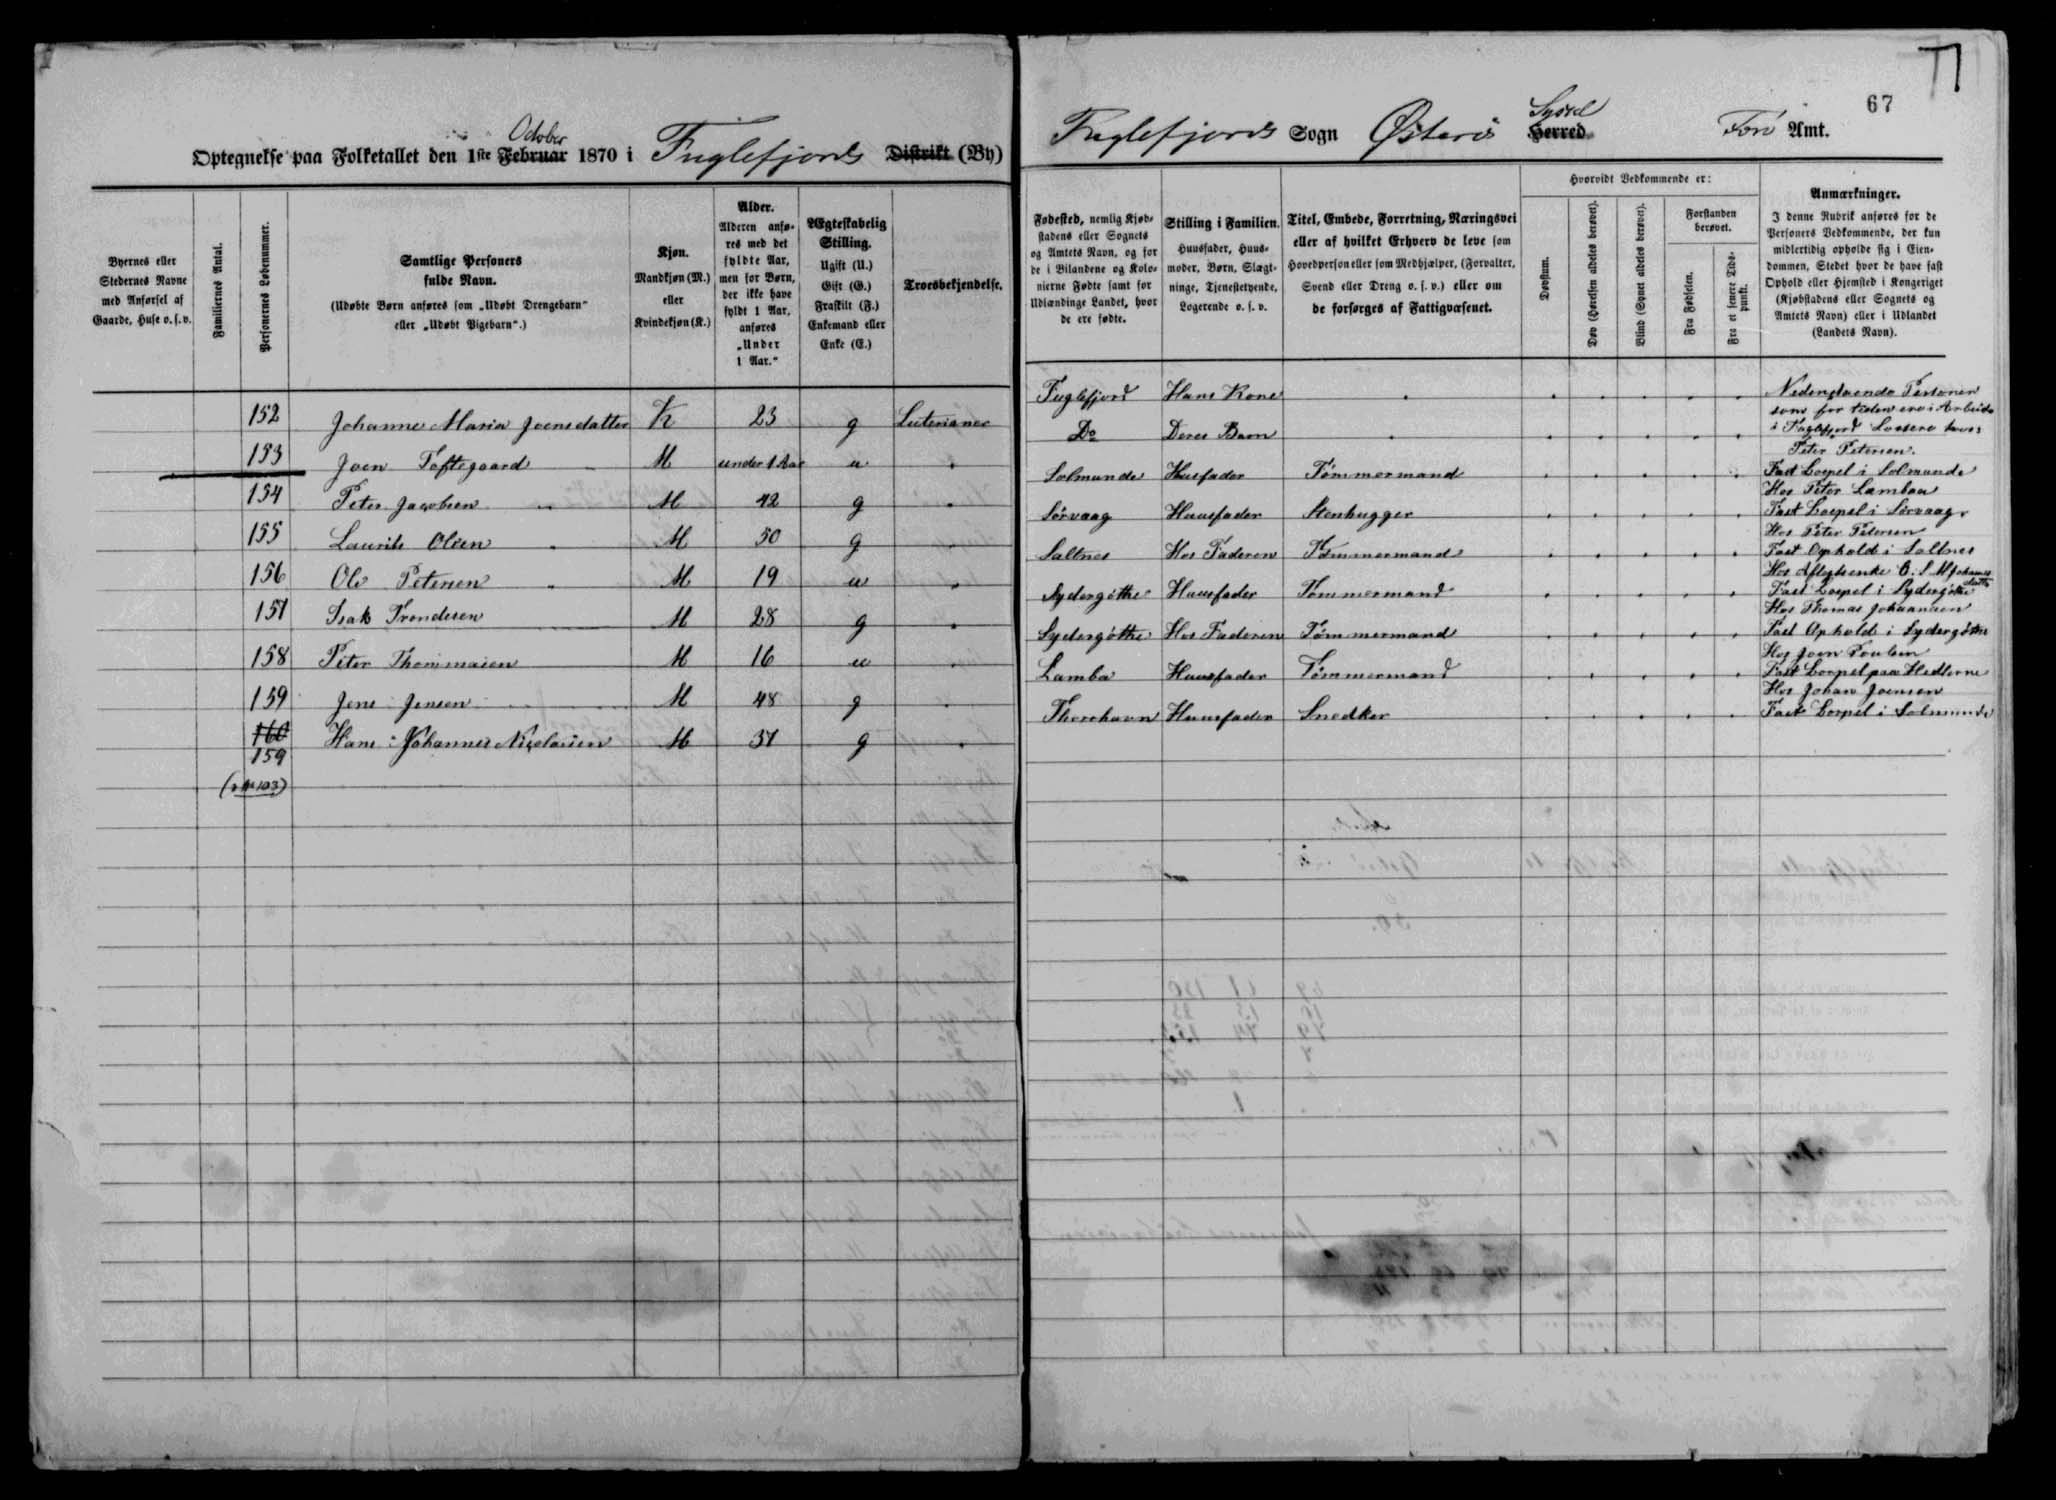 67
Optegnelse paa Folketallet den 1ste Februar October 1870 i Fuglefjords Distrikt (By)
Fuglefjords Sogn Østerø Herred Syssel Amt.
Byernes eller Stedernes Navne med Anførsel af Gaarde, Huse o. s. v.
Familiernes Antal.
Personernes Løbenummer.
Samtlige Personers fulde Navn.
(Udøbte Børn anføres som „Udøbt Drengebarn“ eller „Udøbt Pigebarn“.)
Kjøn.
Mandkjøn (M.) eller Kvindekjøn (K.)
Alder.
Alderen anføres med det fyldte Aar, men for Børn, der ikke have fyldt 1 Aar, anføres „Under 1 Aar.“
Ægteskabelig Stilling.
Ugift (U.) Gift (G.) Fraskilt (F.) Enkemand eller Enke (E.)
Troesbekjendelse.
Fødested, nemlig Kjøbstadens eller Sognets og Amtets Navn, og for de i Bilandene og Kolonierne Fødte samt for Udlændinge Landet, hvor de ere fødte.
Stilling i Familien.
Huusfader, Huusmoder, Børn, Slægtninge, Tjenestetyende, Logerende o. s. v.
Titel, Embede, Forretning, Næringsvei eller af hvilket Erhverv de leve som Hovedperson eller som Medhjælper, (Forvalter, Svend eller Dreng o. s. v.) eller om de forsørges af Fattigvæsenet.
Hvorvidt Vedkommende er:
Døvstum.
Døv (Hørelsen aldeles berøvet).
Blind (Synet aldeles berøvet).
Forstanden berøvet.
Fra Fødselen.
Fra et senere Tidspunkt.
Anmærkninger.
I denne Rubrik anføres for de Personers Vedkommende, der kun midlertidig opholde sig i Eiendommen, Stedet hvor de have fast Ophold eller Hjemsted i Kongeriget (Kjøbstadens eller Sognets og Amtets Navn) eller i Udlandet (Landets Navn).
152 Johanne Maria Joensdatter K 23 g Luterianer Fuglefjord Hans Kone
153 Joen Toftegaard M under 1 Aar u Do Deres Barn
154 Peter Jacobsen M 42 g Solmunde Husfader Tømmermand
155 Laurits Olsen M 50 g Sörvaag Huusfader Stenhugger
156 Ole Petersen M 19 u Saltnes Hos Faderen Tømmermand
157 Isak Trondesen M 28 g Sydergöthe Huusfader Tømmermand
158 Peter Thommasen M 16 u Sydergöthe Hos Faderen Tømmermand
159 Jens Jensen M 48 g Lamba Huusfader Tømmermand
160 159 Hans Johannes Nicolaisen M 37 g Thorshavn Huusfader Snedker
Nedenstaaende Personer
som for tiden ere i Arbeide
i Fuglefjord Logere hos:
Peter Petersen.
Fast Bopel i Solmunde
Hos Peter Lambaa
Fast Bopel i Sörvaag.
Hos Peter Petersen
Fast Ophold i Saltnes
Hos Aftegtsenke
Fast Bopel i Sydergöthe
Hos Thomas Johannsen
Fast Ophold i Sydergöthe
Hos Joen Poulsen
Fast Bopel paa
Hos Johan Joensen
Fast Bopel i Solmunde